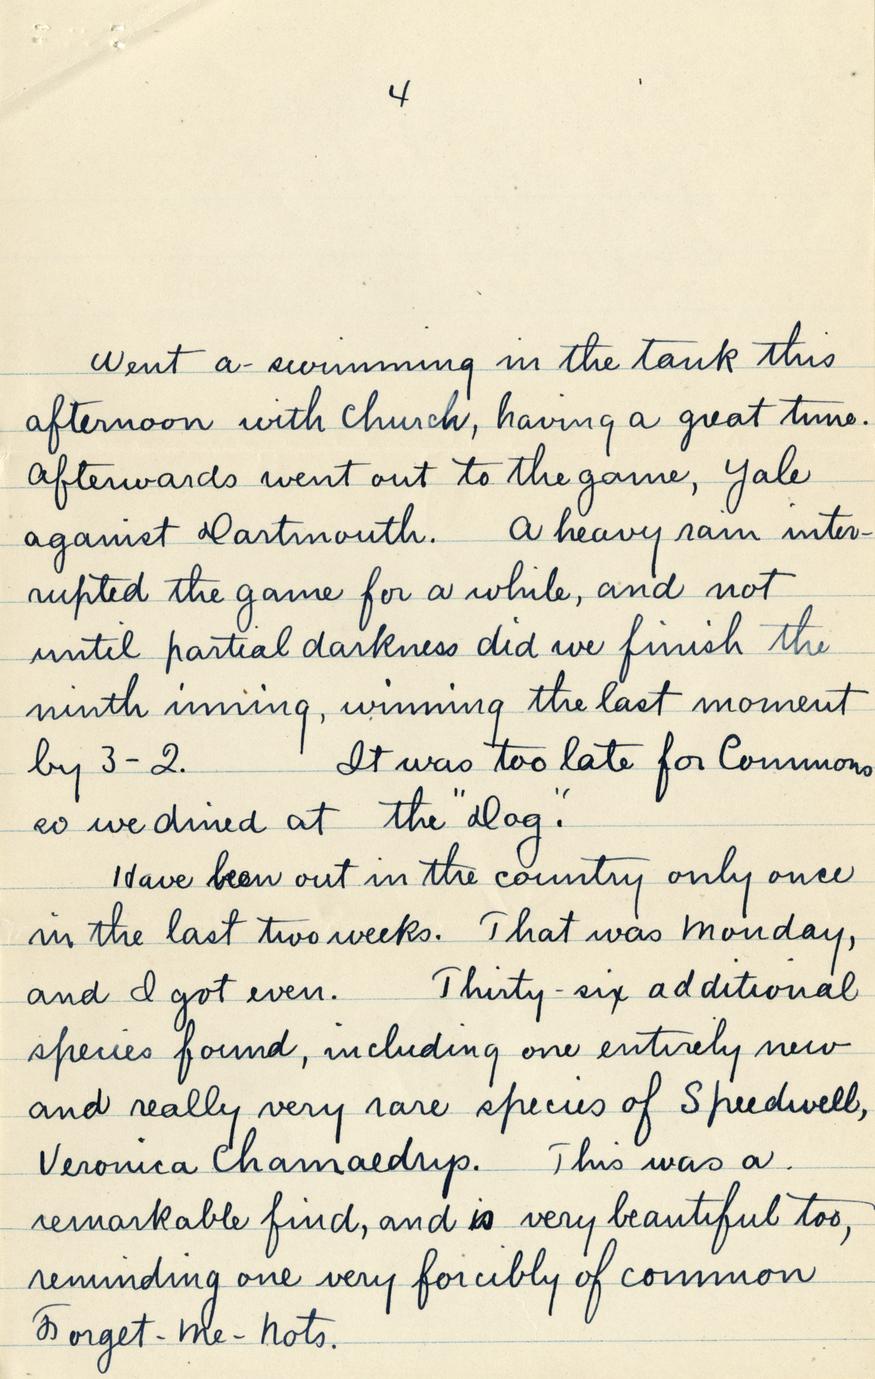 4
Went a-swimming in the tank this
afternoon with Church, having a great time.
Afterwards went out to the game, Yale
against Dartmouth. A heavy rain inter-
rupted the game for a while, and not
until partial darkness did we finish the
ninth inning, winning the last moment
by 3-2. It was too late for Commons
so we dined at the "Dog".
Have been out in the country only once
in the last two weeks. That was Monday,
and I got even. Thirty-six additional
species found, including one entirely new
and really very rare species of Speedwell,
Veronica Chamaedrys. This was a
remarkable find, and is very beautiful too,
reminding one very forcibly of common
Forget-Me-Nots.